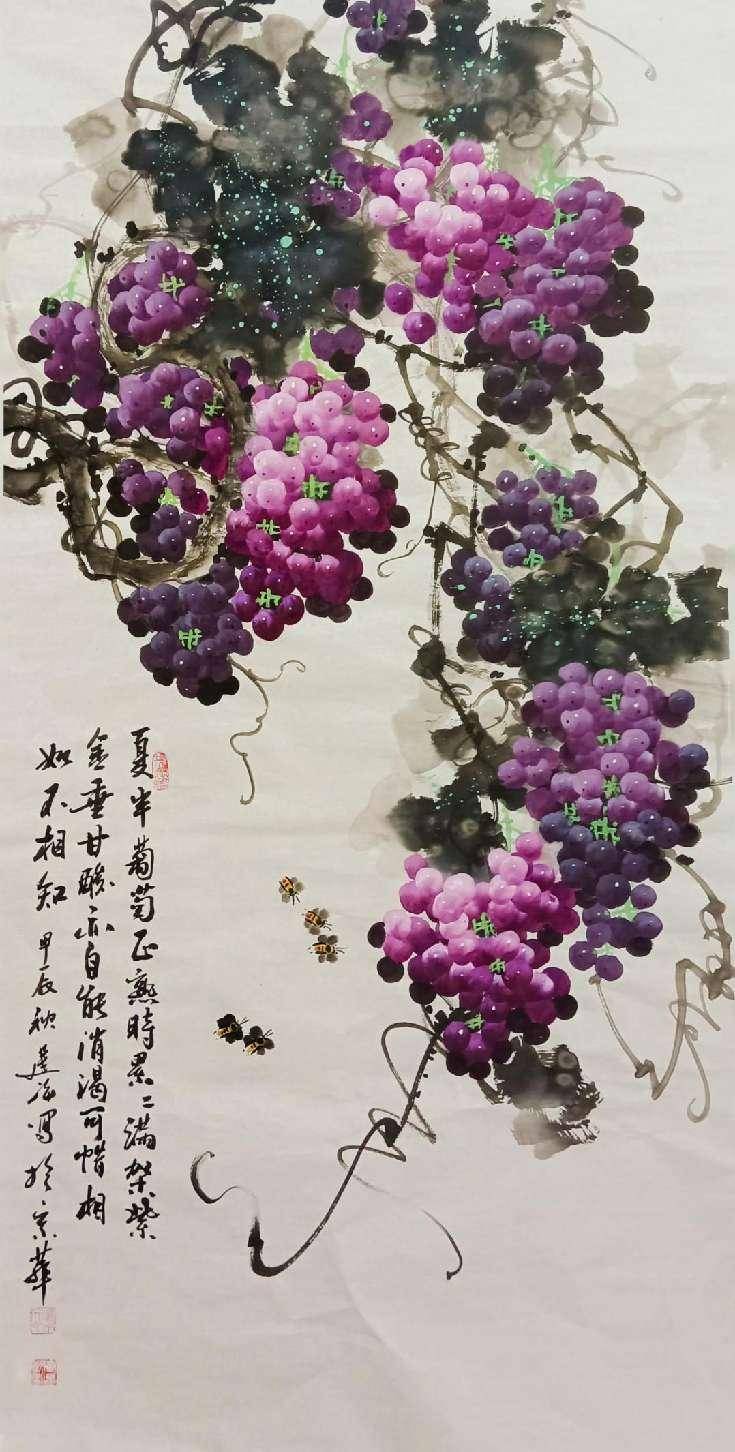 夏半葡萄正熟時累二滿架紫
金垂甘酸亦自能消渴可惜相
如不相知 甲辰秋建從寫於京華